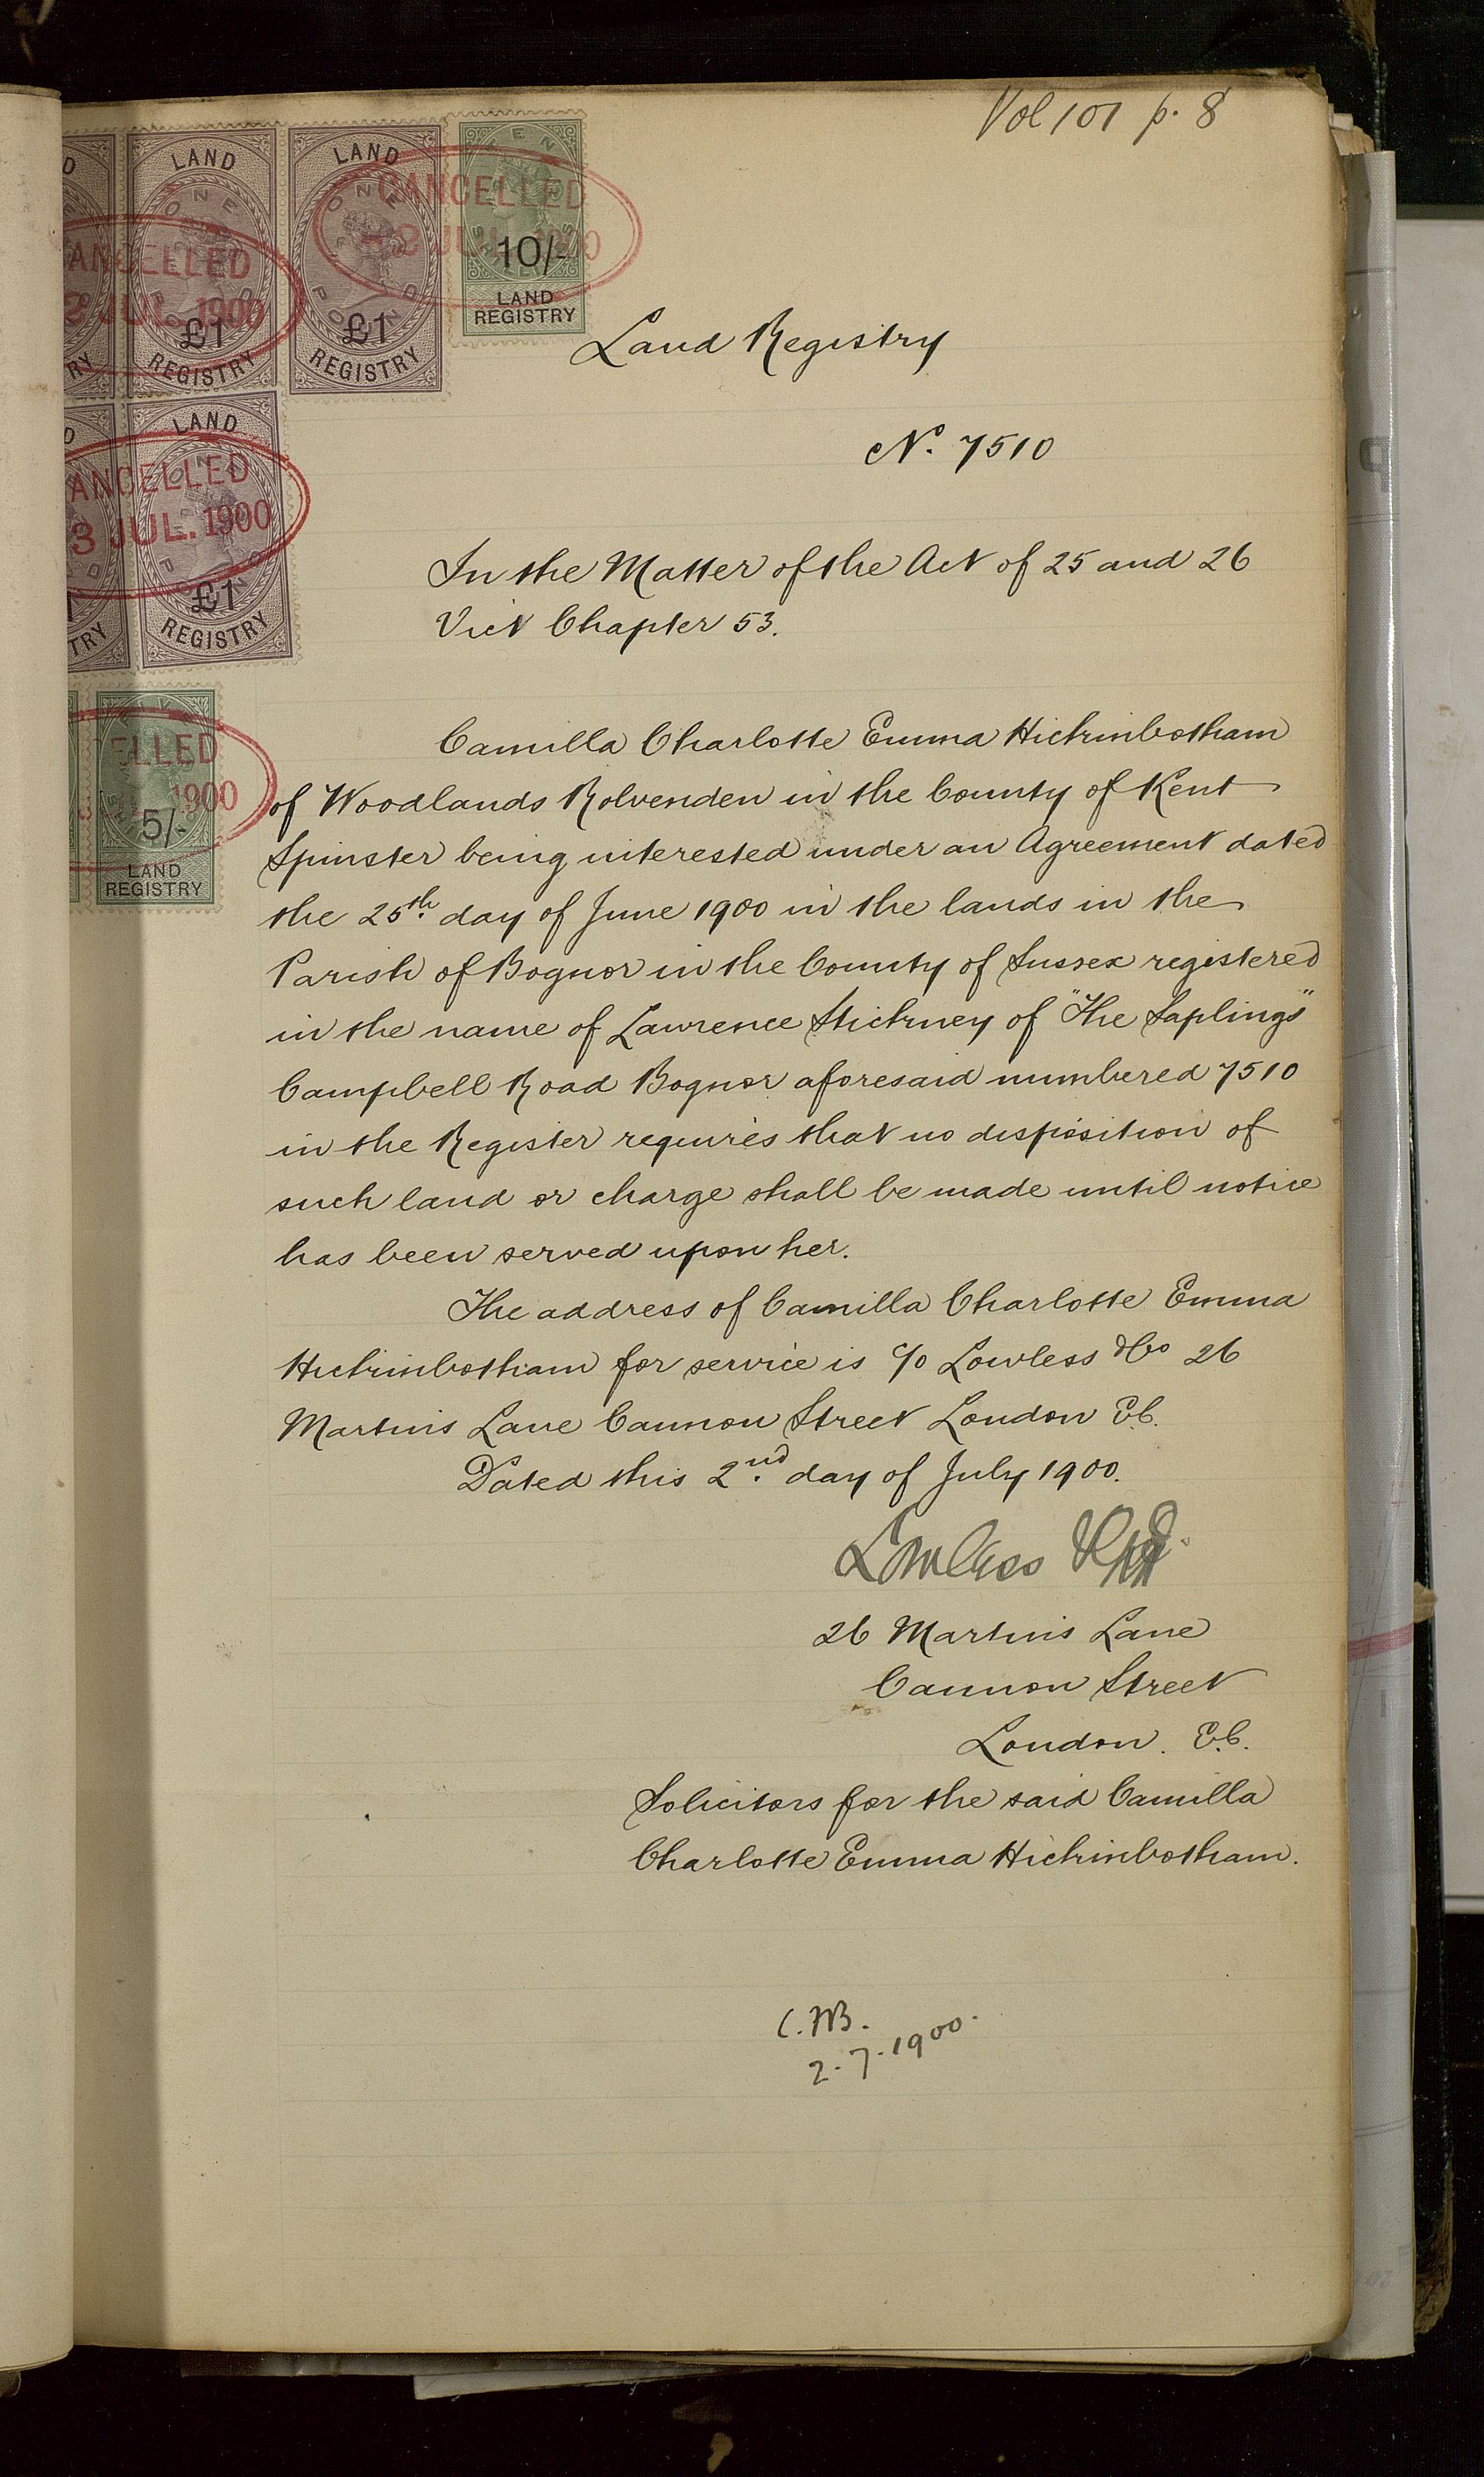 Vol 101 p. 8
LAND
ONE
POUND
£1
REGISTRY
LAND
ONE
POUND
£1
REGISTRY
10/-
LAND
REGISTRY
CANCELLED
JUL. 1900
ANCELLED
JUL. 1900
Land Registry
LAND
£1
REGISTRY
ANCELLED
3 JUL. 1900
TRY
No. 7510
In the Matter of the Act of 25 and 26
Vict Chapter 53.
ELLED
1900
5/-
LAND
REGISTRY
Camilla Charlotte Emma Hickinbotham
of Woodlands Rolvenden in the County of Kent
Spinster being interested under an Agreement dated
the 25th. day of June 1900 in the lands in the
Parish of Bognor in the County of Sussex registered
in the name of Lawrence Stickney of "The Saplings"
Campbell Road Bognor aforesaid numbered 7510
in the Register requires that no disposition of
such land or charge shall be made until notice
has been served upon her.
The address of Camilla Charlotte Emma
Hickinbotham for service is c/o Lowless & Co 26
Martins Lane Cannon Street London E.C.
Dated this 2nd. day of July 1900.
Lowless & Co
26 Martins Lane
Cannon Street
London. E.C.
Solicitors for the said Camilla
Charlotte Emma Hickinbotham.
2.7.1900.